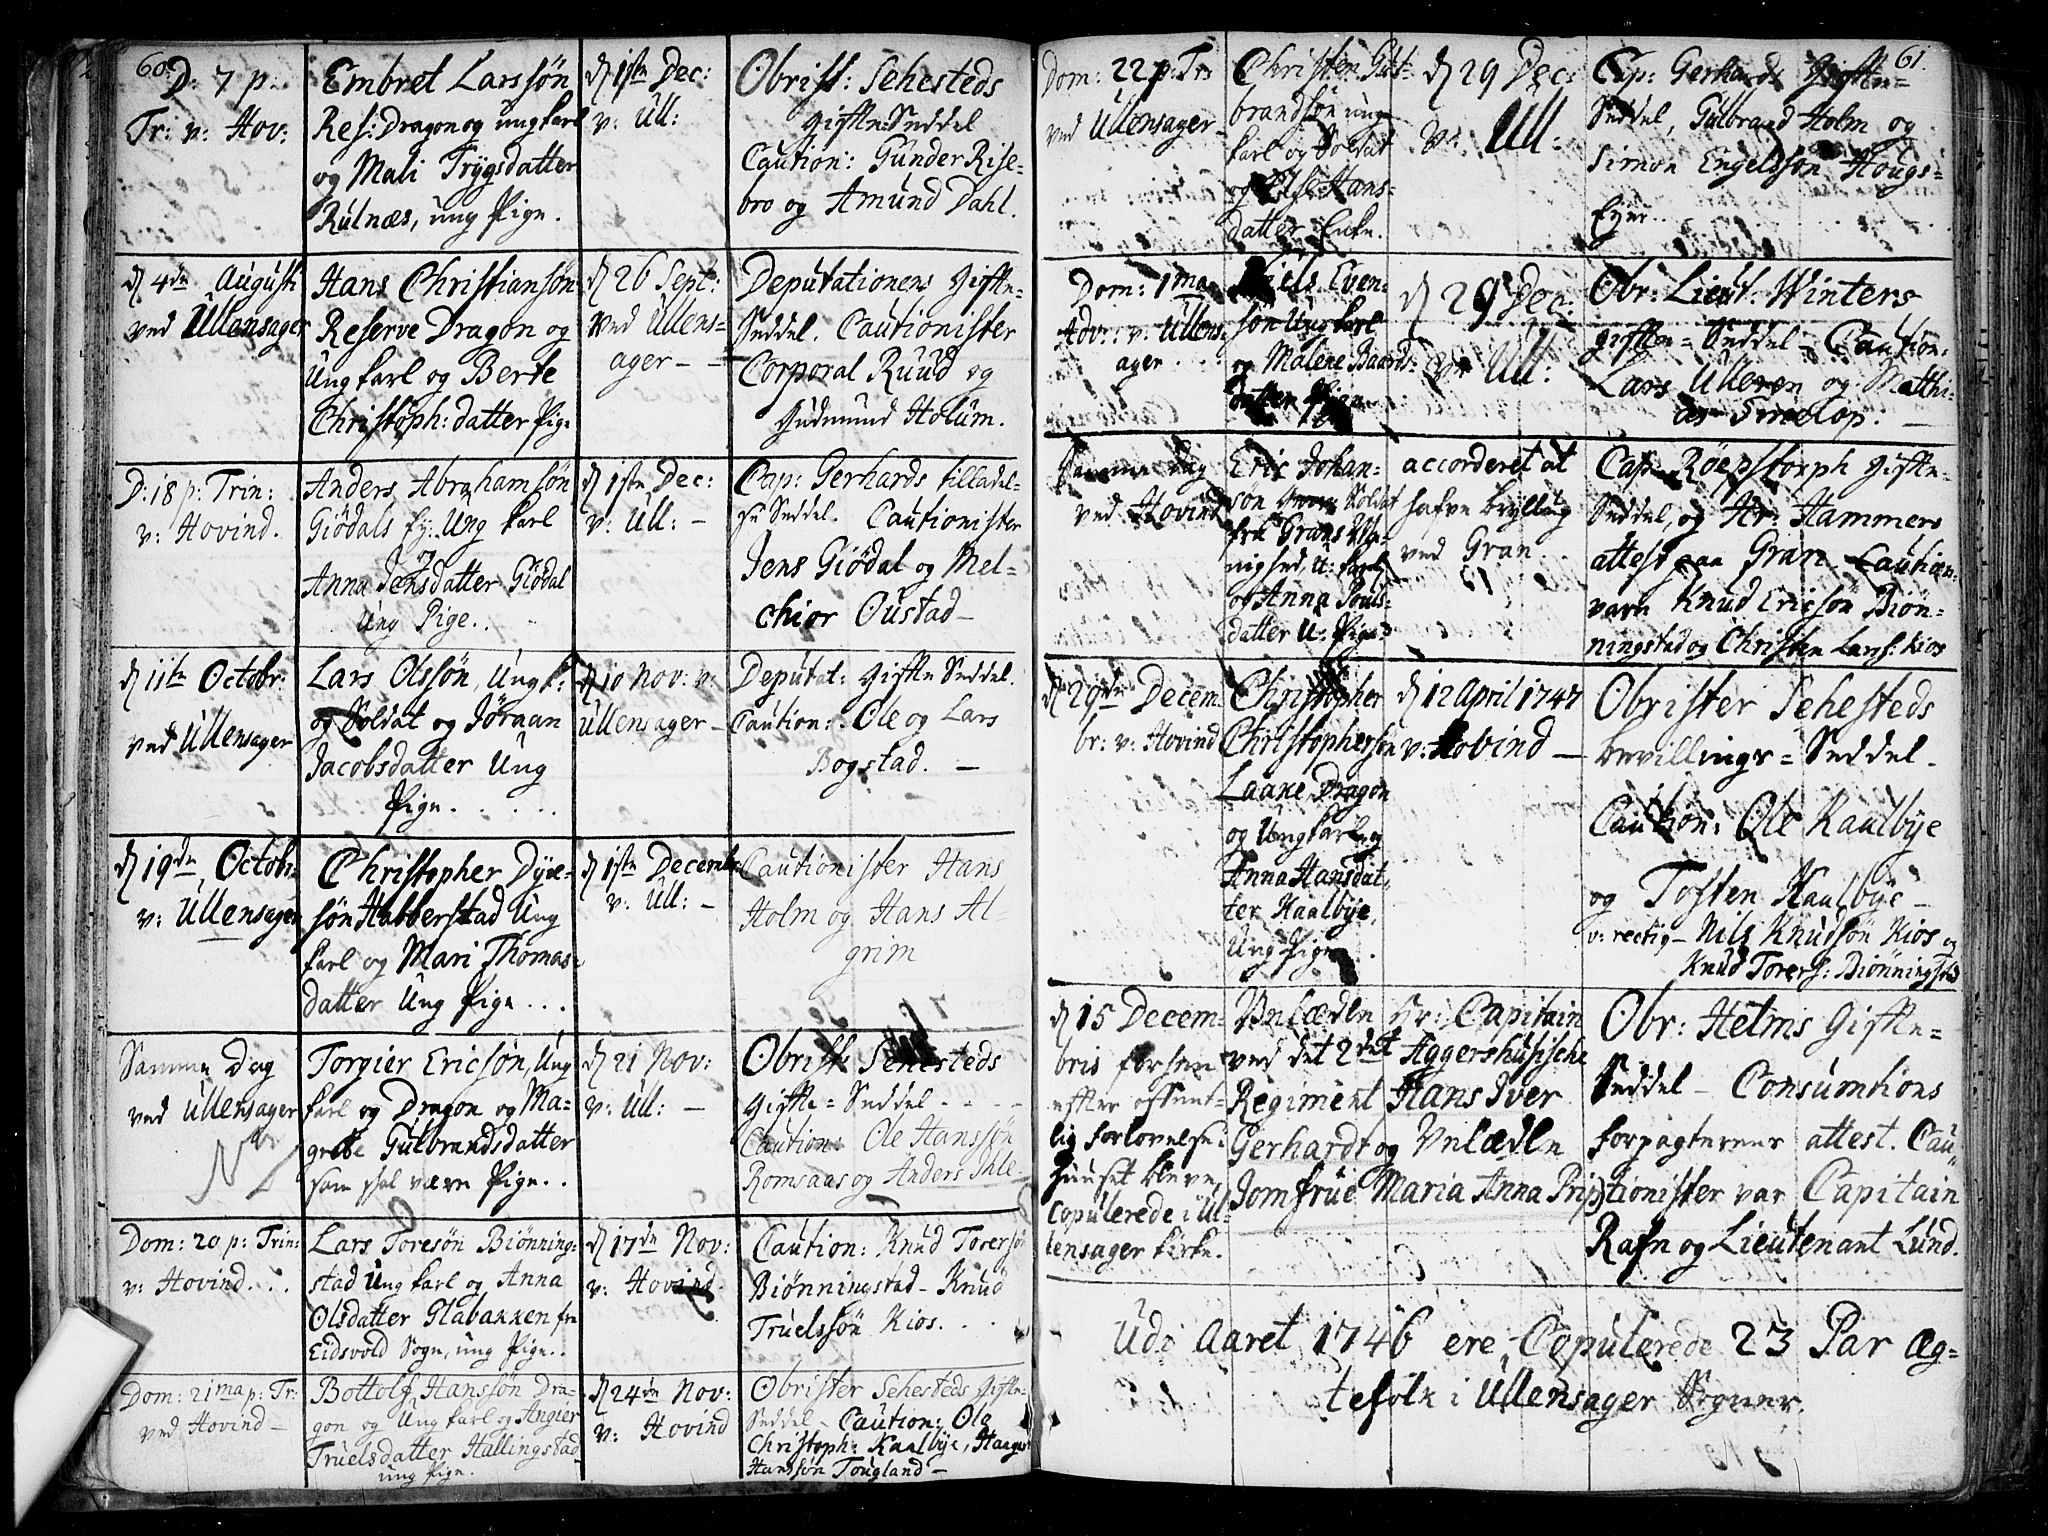 60.
D: 7 p:
Tr: v: Hov:
Embret Larssøn
Res: Dragon og ung karl
og Mali Trygsdatter
Rulnæs, ung Pige.
d 1ste Dec:
v: Ull:
Obrist: Sehesteds
Gifte-Seddel
Caution: Gunder Rise-
bro og Amund Dahl.
d 4de Augusti
ved Ullensager
Hans Christiansøn
Reserve Dragon og
Ung karl og Berte
Christoph: datter Pige
d 26 Sept:
ved Ullens-
ager - -
Deputationens Gifte-
Seddel. Cautionister
Corporal Ruud og
Gudmund Holum.
D: 18 p: Trin:
v: Hovind.
Anders Abrahamsøn
Giödals Ey: Ung karl
og
Anna Jensdatter Giödal
Ung Pige..
d 1ste Dec:
v: Ull: -
Cap: Gerhards tilladel-
se Seddel. Cautionister
Jens Giödal og Mel-
chior Oustad -
d 11te Octobr:
ved Ullensager
Lars Olssøn, Ung k:
og Soldat og Jöraan
Jacobsdatter Ung
Pige. . . . .
d 10 Nov: v:
Ullensager -
Deputat: Gifte Seddel.
Caution: Ole og Lars
Bogstad. -
d 19de Octobr:
v: Ullensager
Christopher Dyre-
søn Habberstad Ung
karl og Mari Thomas-
datter Ung Pige ...
d 1ste Decembr:
v: Ull: -
Cautionister Hans
Holm og Hans Al-
grim
Samme Dag
ved Ullensager
Torgier Ericsøn, Ung
karl og Dragon og Ma-
grete Gulbrandsdatter
som skal være Pige..
d 21 Nov:
v: Ull: -
Obrist Sehesteds
Gifte-Seddel - - -
Caution: Ole Hanssøn
Romsaas og Anders Ihle-
Dom: 20 p: Trin:
v: Hovind. . .
Lars Toresøn Biönning-
stad Ung karl og Anna
Olsdatter Glabakken fra
Eidsvold Sogn, ung Pige..
d 17de Nov:
v: Hovind
Caution: Knud Toresøn
Biönningstad - Knud
Truelssøn Kios. . .
Dom: 21ma p: Tr:
ved Hovind -
Bottolf Hanssøn Dra-
gon og Ung karl og Angier
Truelsdatter Hallingstad
ung Pige.
d 24de Nov:
v: Hovind
Obrister Sehesteds Gifte-
Seddel - Caution: Ole
Christoph: Kaalbye, Haagen
Hanssøn Tougland -
61.
Dom: 22 p: Tr:
ved Ullensager -
Christen Gul-
brandsøn ung
karl og Soldat
og Else Hans-
datter Enke.
d 29 Dec:
v: Ull:
Cap: Gerhards Giften-
Seddel, Gulbrand Holm og
Simon Engelssøn Hougs-
Eyer. .
Dom: 1ma
Adv: v: Ullens-
ager . .
Niels Even-
søn Ung karl
og Malene Baards-
datter Pige
d 29 Dec:
v: Ull:
Obr: Lieut: Winters
giften-Seddel - Caution:
Lars Ulleren og Matthi-
as Smelop. -
Samme Dag
ved Hovind
Eric Johan-
søn Soldat
fra Grans Me-
nighed, U: karl
og Anna Pouls-
datter U: Pige
accorderet at
hafve bryllup
ved Gran.
Cap: Röepstorph Gifte-
Seddel, og Hr: Hammers
attest paa Gran. Caution:
vare Knud Ericsøn Biön-
ningstad og Christen Larss: Kios
d 29de Decem-
br: v: Hovind
Christopher
Christophersøn
Laake, Dragon
og Ung karl og
Anna Hansdat-
ter Kaalbye,
Ung Pige
d 12 April 1747
v: Hovind -
Obrister Sehesteds
bevillings-Seddel.
Caution: Ole Kaalbye
og Tosten Kaalbye -
v: rectig - Nils Knudsøn Kios og
Knud Tores: Biönningstad
d 15 Decem-
bris forhen
efter offent-
lig forlovelse i
Huuset bleve
Copulerede i Ul-
lensager kirke.
Velædle Hr: Capitain
ved det 2det Aggershusische
Regiment Hans Iver
Gerhardt og Velædle
Jomfrue Maria Anna Prip)
Obr: Helms Gifte-
Seddel - Consumtions
forpagterens attest. Cau-
tionister var Capitain
Rafn og Lieutenant Lund.
Udi Aaret 1746 ere Copulerede 23 Par Æg-
tefolk i Ullensager Sogner.